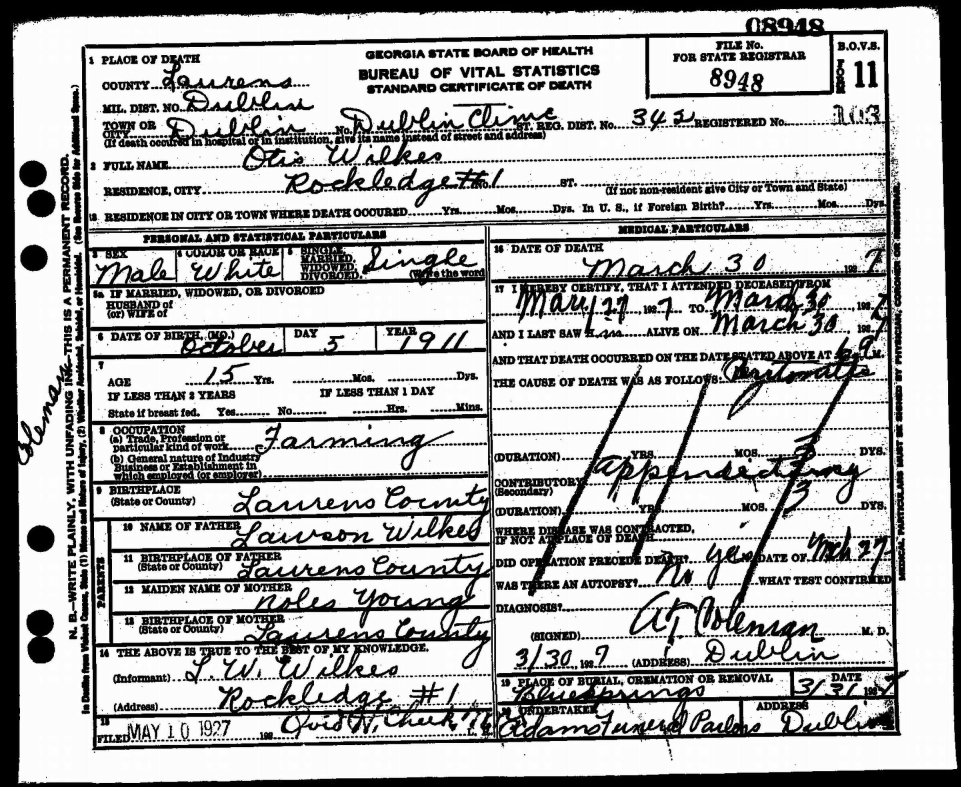 08948
GEORGIA STATE BOARD OF HEALTH
BUREAU OF VITAL STATISTICS
STANDARD CERTIFICATE OF DEATH
FILE No.
FOR STATE REGISTRAR
8948
B.O.V.S.
FORM 11
1 PLACE OF DEATH
COUNTY Laurens
MIL. DIST. NO. Dublin
TOWN OR CITY Dublin No. Dublin Clinic ST. REG. DIST. NO. 342 REGISTERED No. 103
(If death occured in hospital of in institution, give its name instead of street and address)
2 FULL NAME Otis Wilkes
RESIDENCE, CITY Rockledge #1 ST. (If not non-resident give City or Town and State)
RESIDENCE IN CITY OR TOWN WHERE DEATH OCCURED Yrs. Mos. Dys. In U. S., if Foreign Birth? Yrs. Mos. Dys.
PERSONAL AND STATISTICAL PARTICULARS
3 SEX Male 4 COLOR OR RACE White 5 SINGLE, MARRIED, WIDOWED, DIVORCED. Single (Write the word
5a IF MARRIED, WIDOWED, OR DIVORCED
HUSBAND of
(or) WIFE of
6 DATE OF BIRTH, (MO.) October DAY 5 YEAR 1911
7
AGE 15 Yrs. Mos. Dys.
IF LESS THAN 2 YEARS IF LESS THAN 1 DAY
State if breast fed. Yes No Hrs. Mins.
8 OCCUPATION
(a) Trade, Profession or particular kind of work Farming
(b) General nature of Industry
Business or Establishment in
which employed (or employer)
9 BIRTHPLACE
(State or County) Laurens County
PARENTS
10 NAME OF FATHER Lawson Wilkes
11 BIRTHPLACE OF FATHER
(State or County) Laurens County
12 MAIDEN NAME OF MOTHER Noles Young
13 BIRTHPLACE OF MOTHER
(State or County) Laurens County
14 THE ABOVE IS TRUE TO THE BEST OF MY KNOWLEDGE.
(Informant) L. W. Wilkes
(Address) Rockledge #1
15
FILED MAY 10 1927 192 Ovid N. Cheek
MEDICAL PARTICULARS
16 DATE OF DEATH
March 30 1927
17 I HEREBY CERTIFY, THAT I ATTENDED DECEASED FROM
27 1927 TO March 30 1927
AND I LAST SAW him ALIVE ON March 30 1927
AND THAT DEATH OCCURRED ON THE DATE STATED ABOVE AT M.
THE CAUSE OF DEATH WAS AS FOLLOWS:
(DURATION) YRS. MOS. 3 DYS.
CONTRIBUTORY Appendectomy
(Secondary)
(DURATION) YRS. MOS. 3 DYS.
WHERE DISEASE WAS CONTRACTED,
IF NOT AT PLACE OF DEATH
DID OPERATION PRECEDE DEATH? yes DATE OF Mch 27
WAS THERE AN AUTOPSY? No WHAT TEST CONFIRMED
DIAGNOSIS?
(SIGNED) A. T. Coleman M. D.
3/30, 1927 (ADDRESS) Dublin
19 PLACE OF BURIAL, CREMATION OR REMOVAL DATE
Bluesprings 3/31 1927
20 UNDERTAKER ADDRESS
Adams Funeral Parlors Dublin
N. B.—WRITE PLAINLY, WITH UNFADING INK—THIS IS A PERMANENT RECORD.
Coleman